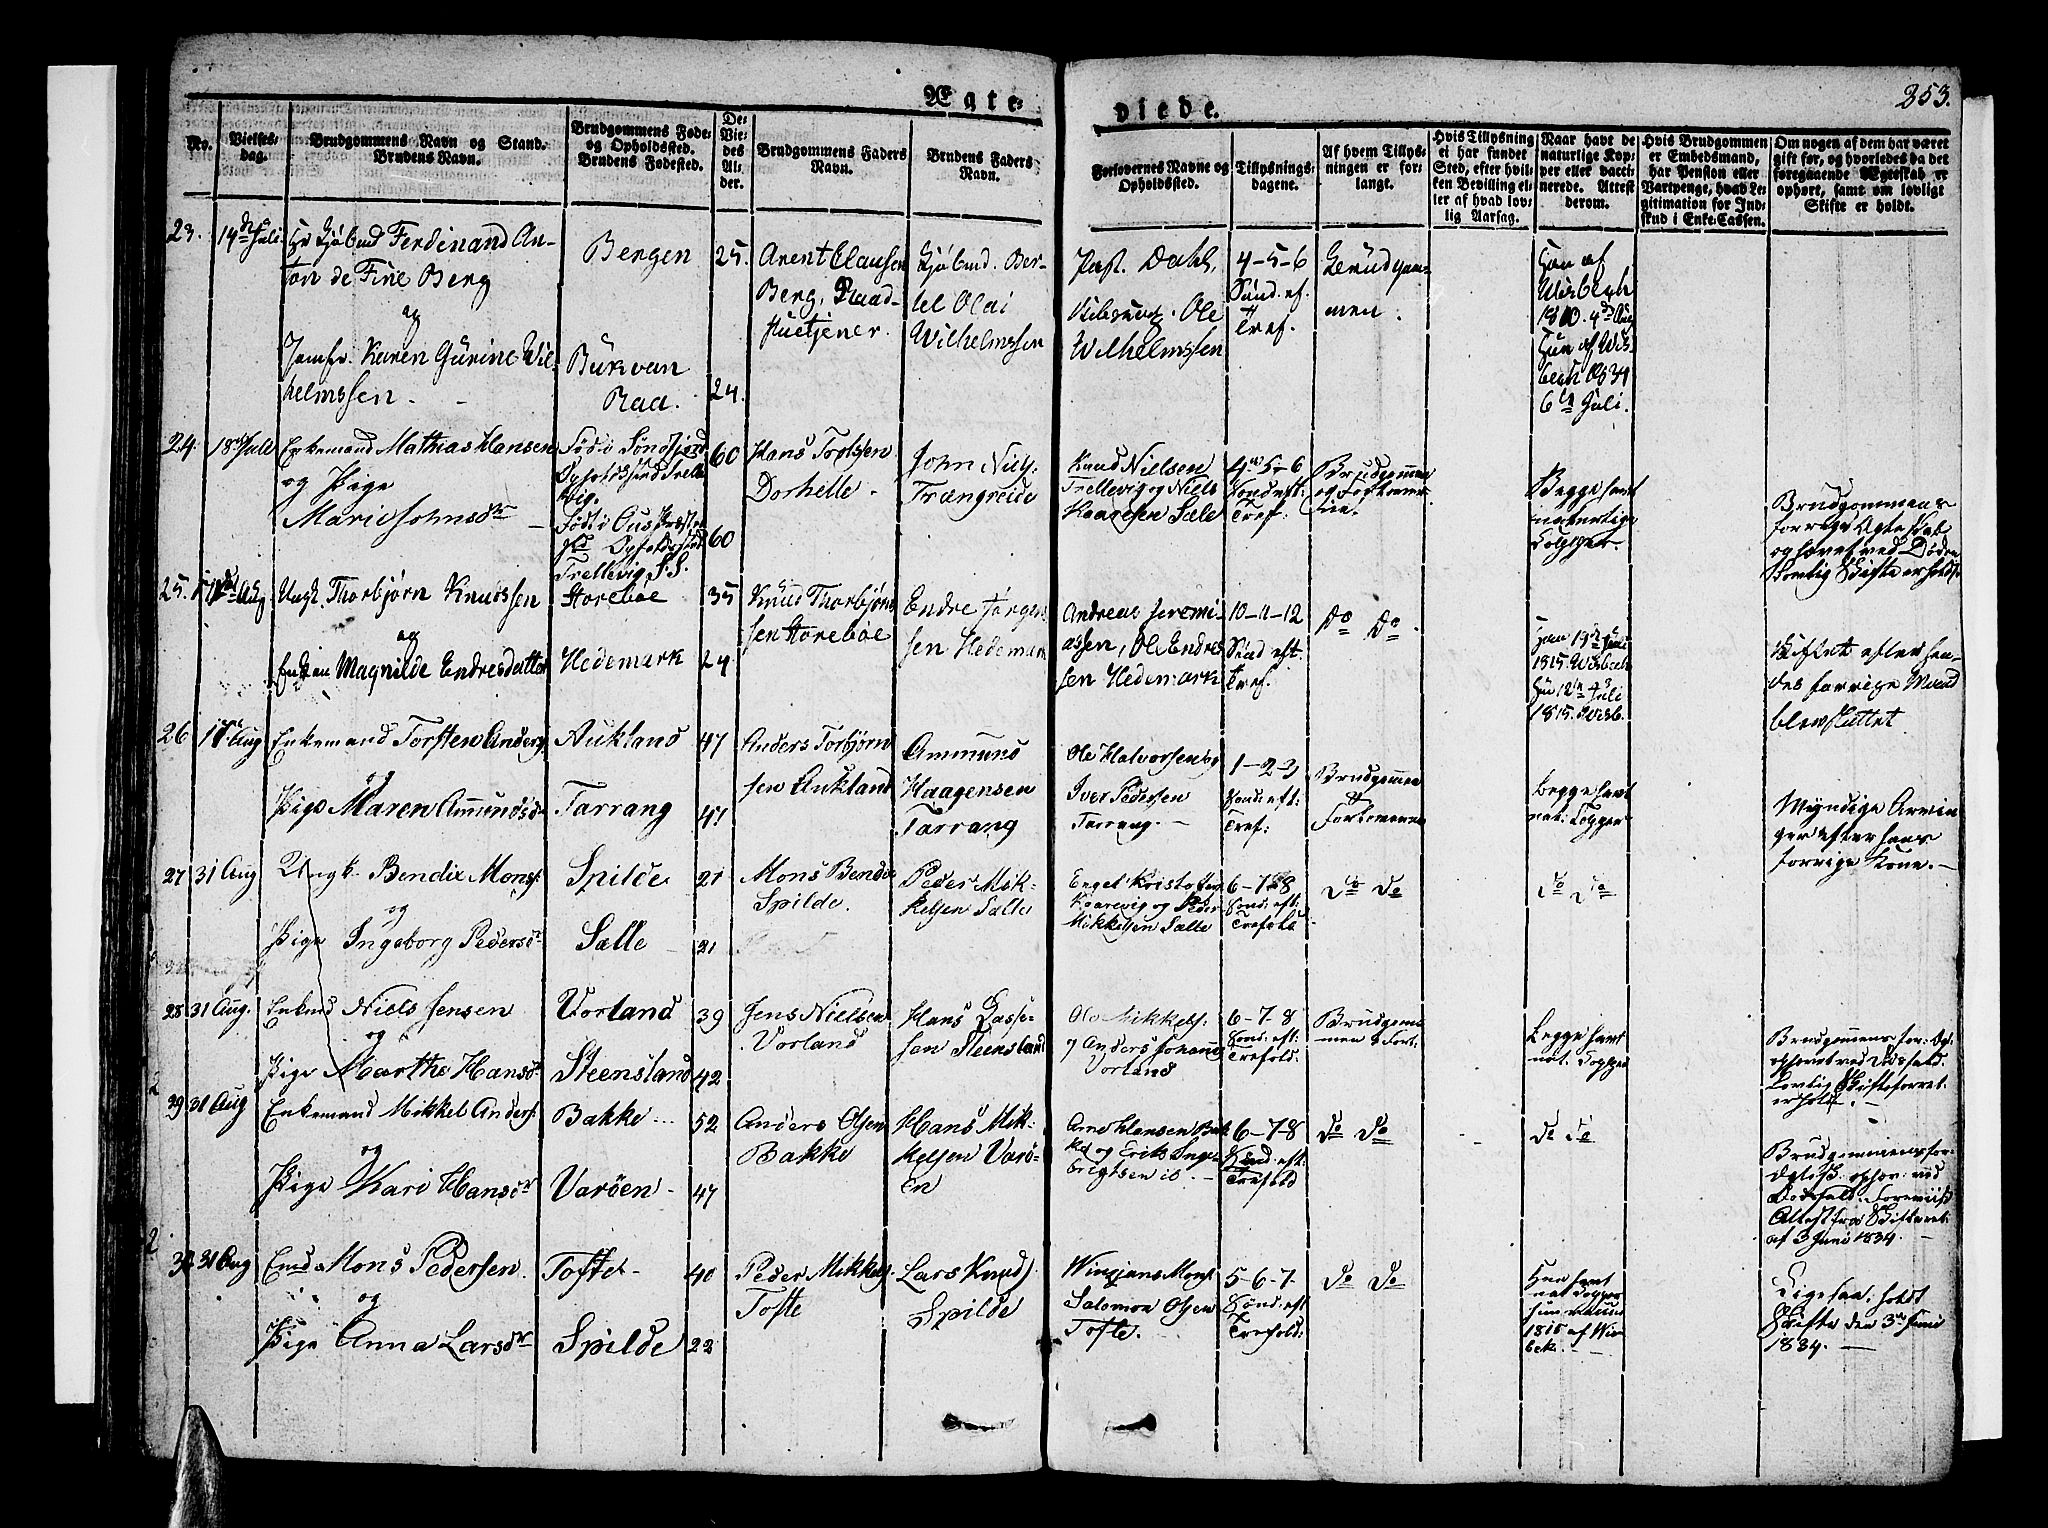 Ægte-
viede.
253.
No.
Vielses-
dag.
Brudgommens Navn og Stand.
Brudens Navn.
Brudgommens Føde-
og Opholdssted.
Brudens Fødested.
De
Vie-
des
Al-
der.
Brudgommens Faders
Navn.
Brudens Faders
Navn.
Forlovernes Navne og
Opholdssted.
Tillysnings-
dagene.
Af hvem Tillys-
ningen er for-
langt.
Hvis Tillysning
ei har fundet
Sted, efter hvil-
ken Bevilling el-
ler af hvad lov-
lig Aarsag.
Naar havt de
naturlige Kop-
per eller vacci-
nerede. Attest
derom.
Hvis Brudgommen
er Embedsmand,
har Pension eller
Vartpenge, hvad Le-
gitimation for Ind-
skud i Enke-Cassen.
Om nogen af dem har været
gift før, og hvorledes da det
foregaaende Ægteskab er
ophørt, samt om lovligt
Skifte er holdt.
23.
14de Juli
Hr Kjøbmd Ferdinand An-
ton de Fine Berg
og
Jomfr. Karen Gurine Wil-
helmssen.
Bergen
Raa.
25.
24.
Arent Clausen
Berg, Raad-
stuetjener.
Kjøbmd. Ber-
tel Olai
Wilhelmssen
Dahl,
Ole
Wilhelmssen
4-5-6
Sünd. ef.
Tref.
Brudgom-
men.
Han af
1810. 4de Aug
Hun af Wis-
bech 1834
6te Juli.
24.
18de Juli
Enkemand Mathias Hansen
og Pige
Marie Johnsdr
Født i Søndfjord
Opholdssted Trelle-
vig.
Født i Ous Præste-
gjd Opholdssted
Trellevig S. S.
60
60
Hans
Dorhelle
John Niels.
Trængreide
Knud Nielsen
Trellevig og Niels
Kaaresen Sæle
4-5-6
Sønd. eft:
Tref:
Brudgommen
og Forloverne
Begge havt
naturlige
Kopper.
Brudgommens
forrige Ægteskab
ophævet ved Døden
Lovlig Skifte er holdt.
25.
Aug
Ungk. Thorbjørn Knudssen
og
Enken Magnilde Endresdatter
Storebøe
Hedemark
35
24.
Knud Thorbjørn-
sen Storebøe
Endre Jørgen-
sen Hedemark
Andreas Jeremi-
assen, Ole Endre-
sen Hedemark
10-11-12
Sünd eft.
Tref.
Do Do.
1815. Wisbech
Juli
1815. Wisb.
Skiftet efter hen-
des forrige Mand
blev sluttet
26
17 Aug
Enkemand Torsten Anders.
og
Pige Maren Amundsd.
Aukland
Tarrang
47
47
Anders Torbjørn-
sen Aukland
Ammund
Haagensen
Tarrang
Ole Halvorsen og
Iver Pedersen
Tarrang.
1-2-3
Sønd: eft:
Tref:
Brudgommen
&
Forloverne
Begge havt
nat: Kopper
Myndige Arvin-
ger efter hans
forrige Kone.
27
31 Aug
Ungk. Bendix Mons.
og
Pige Ingeborg Pedersdr
Spilde
Sælle
21
21
Mons Bendix
Spilde.
Peder Mik-
kelsen Sælle
Engel Kristofers.
Kaarevig og Peder
Mikkelsen Sælle
6-7-8
Sønd: eft:
Trefold
Do Do
Do Do
28
31 Aug.
Enkmd Niels Jensen
og
Pige Marthe Hansdr
Vorland
Steensland
39
42
Jens Nielsen
Vorland
Hans Lasse-
sen Steensland
Ole Mikkels.
& Anders Johannes
Vorland
6-7-8
Sønd: eft:
Trefold.
Brudgom-
men & Forl.
Begge havt
nat. Kopper
Brudgommens for: Ægt.
ophævet ved Dødsfald.
Lovlig Skifteforret.
er holdt.
29
31 Aug
Enkemand Mikkel Anders.
og
Pige Kari Hansdr
Bakke
Varøen
52
47
Anders Olsen
Bakke
Hans Mik-
kelsen Varø-
en
Arne Hansen Bak-
ke og Erik Inge-
brigtsen ib.
6-7-8
Sønd: eft:
Trefold
Do Do
Do Do
Brudgommens for:
ophør: ved
Dødsfald. Foreviist
Attest fra Skifteret:
af 3 Juni 1834.
30
31 Aug
Emd Mons Pedersen
og
Pige Anna Larsdr
Tofte
Spilde
40
22
Peder Mikkels.
Tofte
Lars Knuds.
Spilde
Mons.
Salomon Olsen
Tofte.
5-6-7
Sønd: eft
Trefold:
Do Do
Han havt
nat Kopper
hun vaccin
1815 af Wis-
bek.
Ligesaa: holdt
Skifte den 3de Juni
1834.